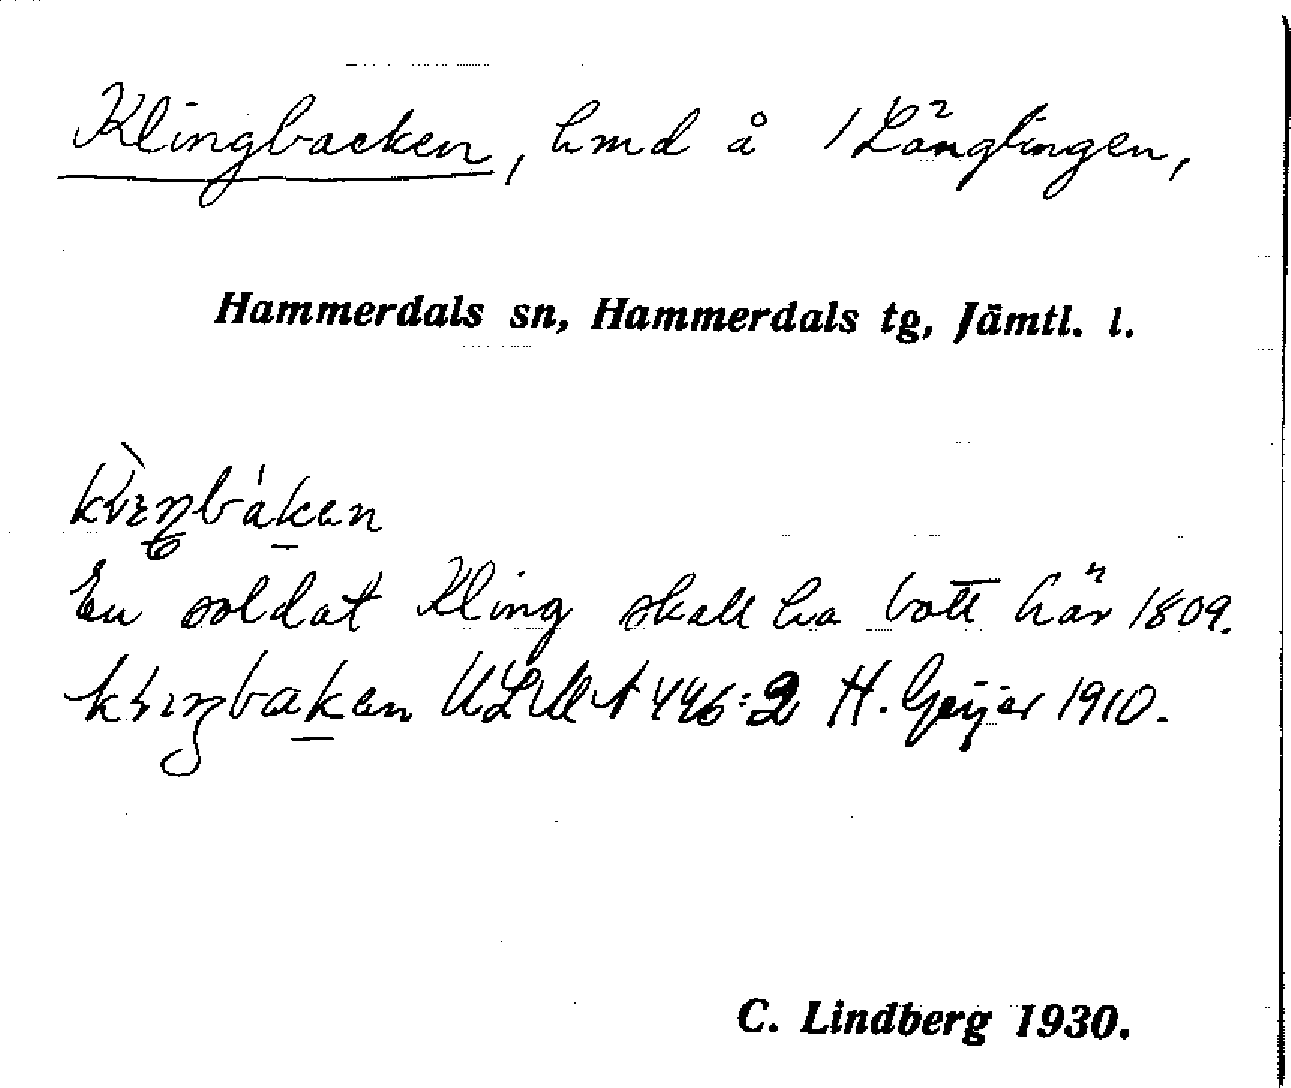 Klingbacken, hmd å 1 Långlingen,
Hammerdals sn, Hammerdals tg, Jämtl. l.
En soldat Kling skall ha bott här 1809.
ULMA 446:2 H. Geijer 1910.
C. Lindberg 1930.